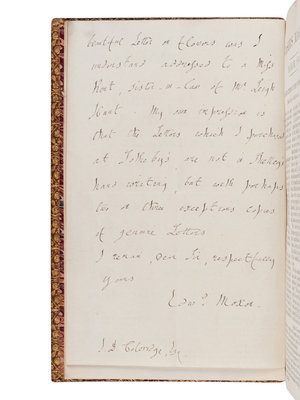 beautiful Letter on Flowers was I
understand addressed to a Miss
Kent, sister-in-law of Mr Leigh
Hunt. My own impression is
that the Letters which I purchased
at Sotheby's are not in Shelley's
hand writing, but with perhaps
two or three exceptions copies
of genuine Letters.
I remain, Dear Sir, respectfully
yours
Edwd. Moxon.
J. D. Coleridge, Esq